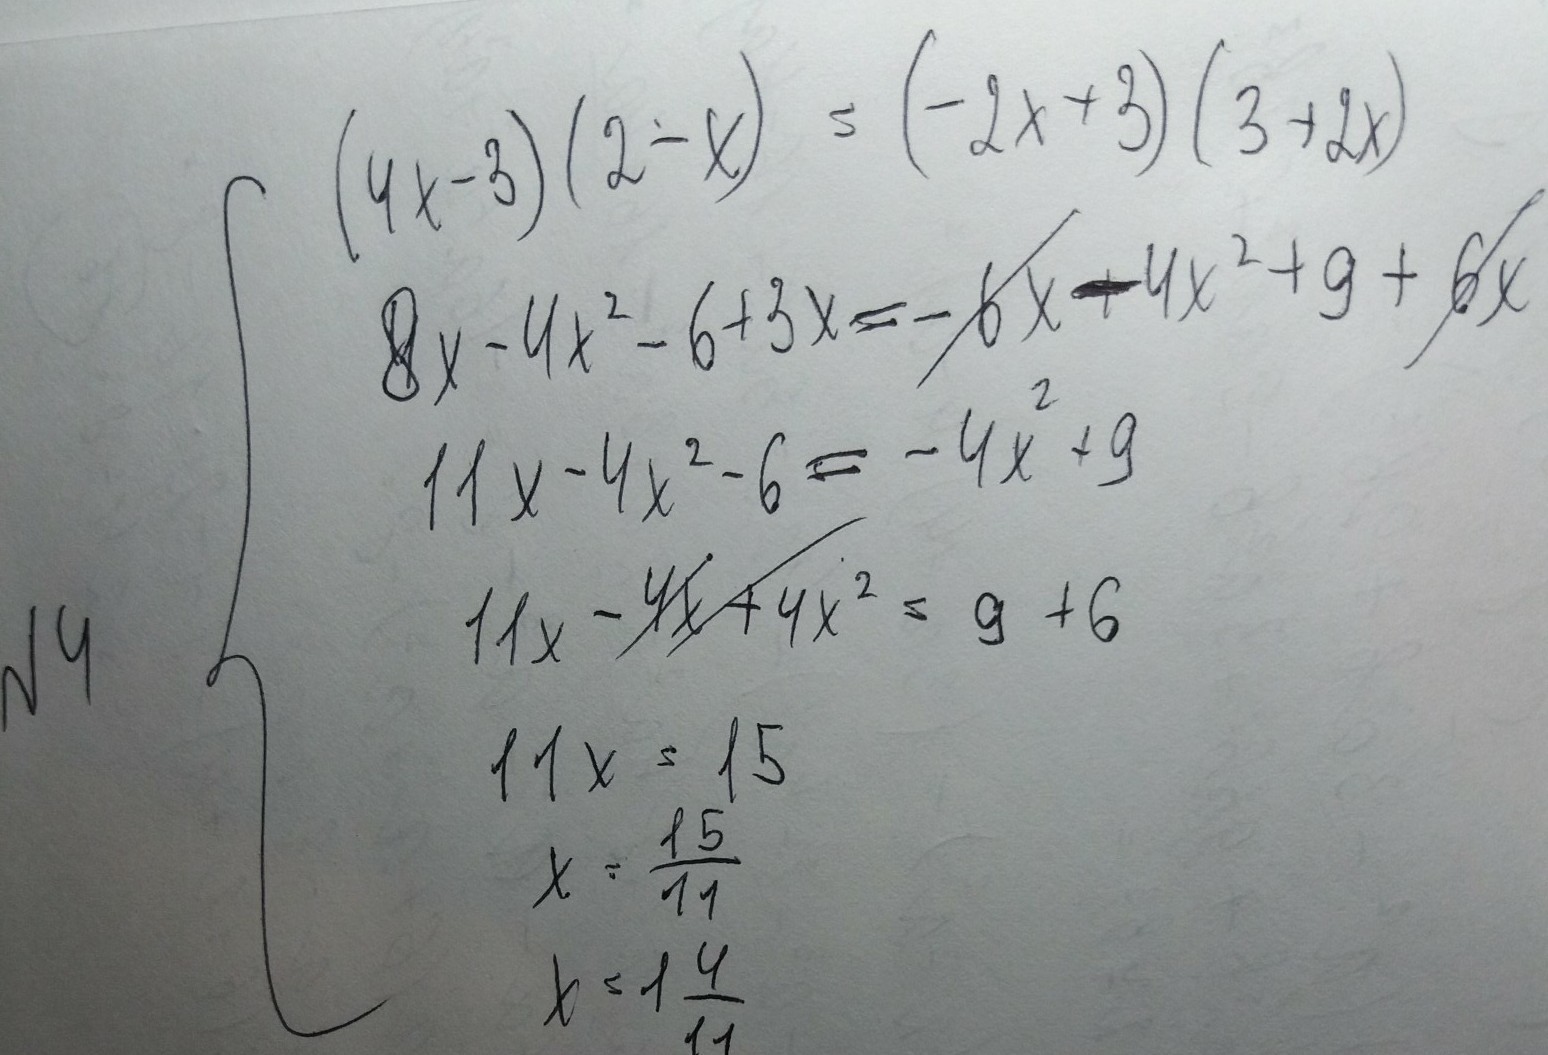 (4x-3)(2-x) = (-2x+3)(3+2x)
8x-4x²-6+3x=-6x-4x²+9+6x
11x-4x²-6=-4x²+9
N4
11x-4x+4x²=9+6
11x=15
x=15/11
x=1 4/11